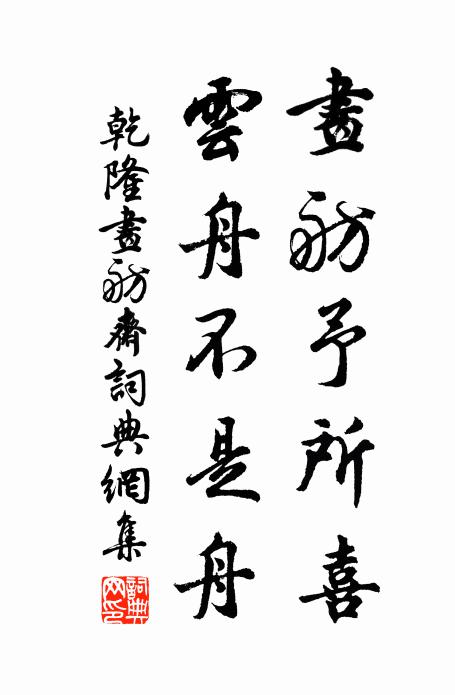 畫舫予所喜
雲舟不是舟
乾隆畫舫齋詞典網集
詞典
网印